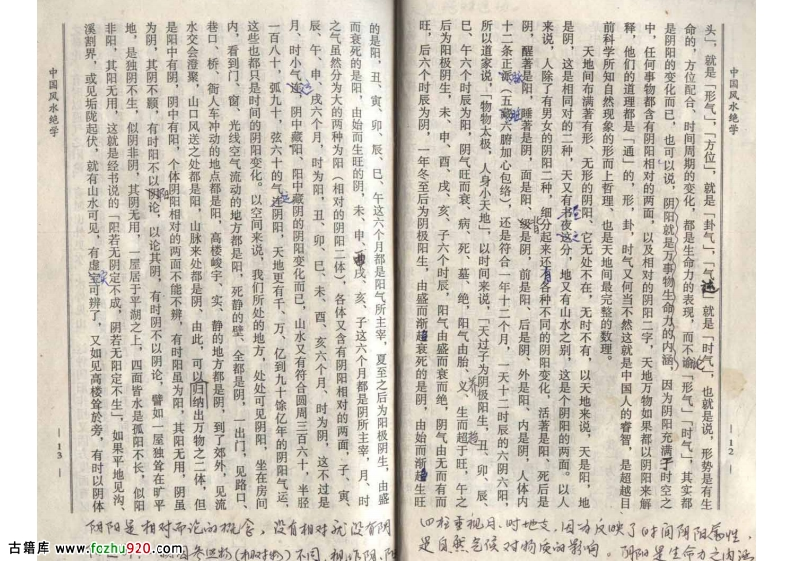 中国风水绝学
— 12 —
头」，就是「形气」，「方位」，就是「卦气」，「气运」就是「时气」，也就是说，形势是有生
命的，方位配合，时间周期的变化，都是生命力的表现，而不论「形气」「时气」，其实都
是阴阳的变化而已，也可以说，阴阳就是万事物生命力的内涵，因为阴阳充满于时空之
中，任何事物都含有阴阳相对的两面，以及相对的阴阳二字，天地万物如果都以阴阳来解
释，他们的道理都是「通」的，形，卦，时气又何当不然这就是中国人的睿智，是超越目
前科学所知自然现象的形而上哲理、也是天地间最完整的数理。
天地间布满著有形、无形的阴阳、它无处不在，无时不有，以天地来说，天是阳，地
是阴，这是相对的二种，天又有书夜这分，地又有山水之别，这是个阴阳的两面。以人
来说，人除了有男女的阴阳二种，细分起来还有各种不同的阴阳变化，活著是阳、死后是
阴，醒著是阳，睡著是阴，面是阳、级是阴，前是阳、后是阴，外是阳、内是阴，人体内
十二条正派（五藏六腑加心包络），还是符合一年十二个月，一天十二时辰的六阴六阳
所以道家说，「物物太极，人身小天地」，以时间来说，「天过子为阴极阳生，丑、卯、辰、
巳、午六个时辰为阳，阴气旺而衰、病、死、墓、绝，阳气由胎、义、生而超于旺，午之
后为阳极阴生，未、申、酉、戌、亥、子六个时辰，阳气由盛而衰而绝，阴气由无而有而
旺，后六个时辰为阴，一年冬至后为阴极阳生，由盛而渐趋衰死的是阴，由始而渐趋生旺
四柱重视月、时地支，因为反映了时间阴阳属性，
是自然气候对物质的影响。阴阳是生命力之内涵
中国风水绝学
— 13 —
的是阳，丑、寅、卯、辰、巳、午这六个月都是阳气所主宰，夏至之后为阳极阴生，由盛
而衰死的是阳，由始而生旺的是阴，未、申、戌、亥、子这六个月都是阴所主宰，月、时
之气虽然分为大的两种为阳（相对的阴阳二体），各体又含有阴阳相对的两面，子、寅、
辰、午、申、戌六个月，时为阳，丑、卯、巳、未、酉、亥六个月、时为阴，这不过是
月、时小气运，阴中藏阳、阳中藏阴的阴阳变化而已，山水又有符合圆周三百六十，半胫
一百八十，弧九十，弦六十的气连阴阳，天地更有千、万、亿到九十馀亿年的阴阳气运，
这些也都只是时间的阴阳变化。以空间来说，我们所处的地方，处处可见阴阳，坐在房间
内，看到门、窗，光线空气流动的地方都是阳，死静的壁、全都是阴，一出门，见路口、
巷口、桥、衖人车冲动的地点都是阳，高楼峻宇、实、静的地方都是阴，到了郊外，见流
水交会澄聚，山口风送之处都是阳、山脉来处都是阴、由此，可以归纳出万物之二体，但
是阳中有阴，阴中有阳，个体阴阳相对的两面不能不辨，有时阳虽为阳，其阳无用，阴虽
为阴，其阴不颖，有时阳不以阴论，以论其阴，有时阴不以阴论，譬如一屋独耸在旷平
地，是独阴不生，似阴非阴，其阴无用，一屋居于平湖之上，四面皆水是孤阳不长，似阳
非阳，其阳无用，这就是经书说的「阳若无阴定不成，阴若无阳定不生」，如果平地见沟、
溪割界，或见垢陇起伏，就有山水可见，有虚宝可辨了，又如见高楼耸於旁，有时以阴体
阴阳是相对而论的概念，没有相对就没有阴
古籍库 www.fczhu920.com